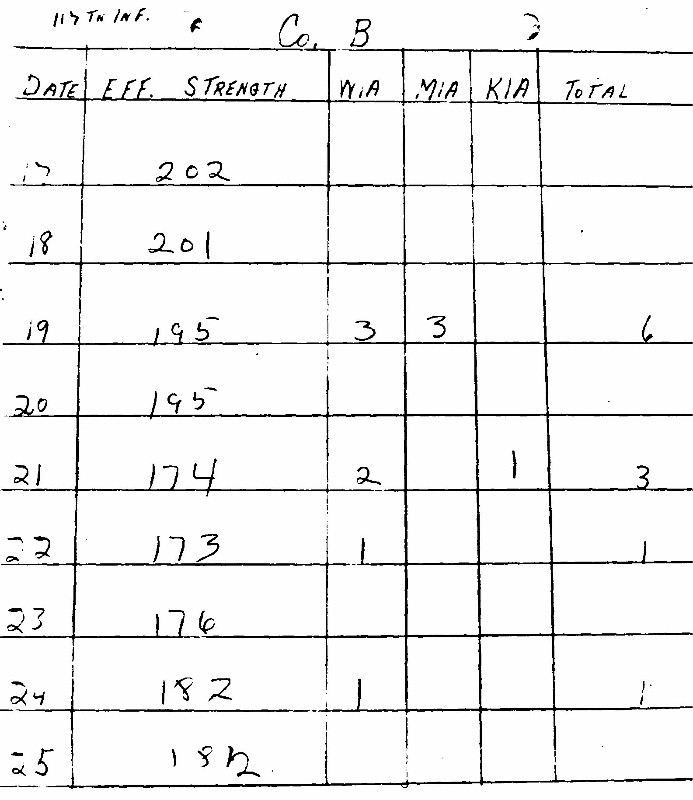 117TH INF.
Co. B
DATE EFF. STRENGTH WIA MIA KIA TOTAL
17 202
18 201
19 195 3 3 6
20 195
21 174 2 1 3
22 173 1 1
23 176
24 182 1 1
25 182